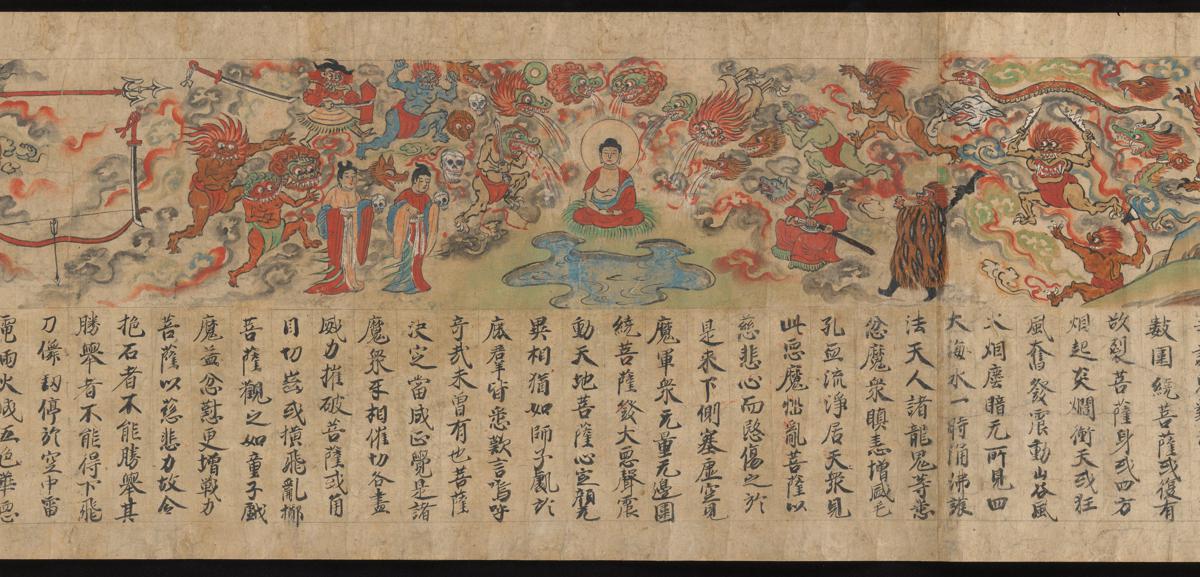 數圍繞菩薩或復有
故裂菩薩身或四方
烟起炎爓衝天或狂
風奮發震動山谷風
火烟塵暗无所見四
大海水一時涌沸護
法天人諸龍鬼等悉
忿魔衆瞋恚增盛毛
孔血流淨居天衆見
此惡魔惱亂菩薩以
慈悲心而愍傷之於
是來下側塞虛空見
魔軍衆无量无邊圍
繞菩薩發大惡聲震
動天地菩薩心定顏无
異相猶如師子處於
鹿群皆悉歎言嗚呼
奇哉未曾有也菩薩
決定當成正覺是諸
魔衆互相催切各盡
威力摧破菩薩或角
目切齒或橫飛亂擲
菩薩觀之如童子戲
魔益忿懟更增戰力
菩薩以慈悲力故令
抱石者不能勝舉其
勝舉者不能得下飛
刀儛劒停於空中雷
電雨火成五色華惡